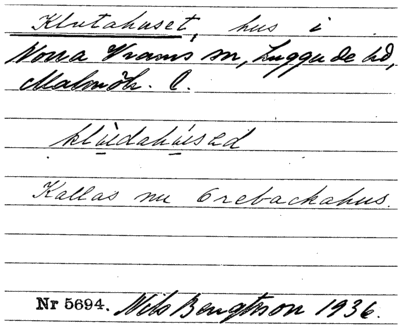 Klutahuset, hus i
Norra Vrams sn, Luggude hd,
Malmöh. l.
klúedahúesəd
Kallas nu Orebackahus.
Nr 5694. Nils Bengtsson 1936.